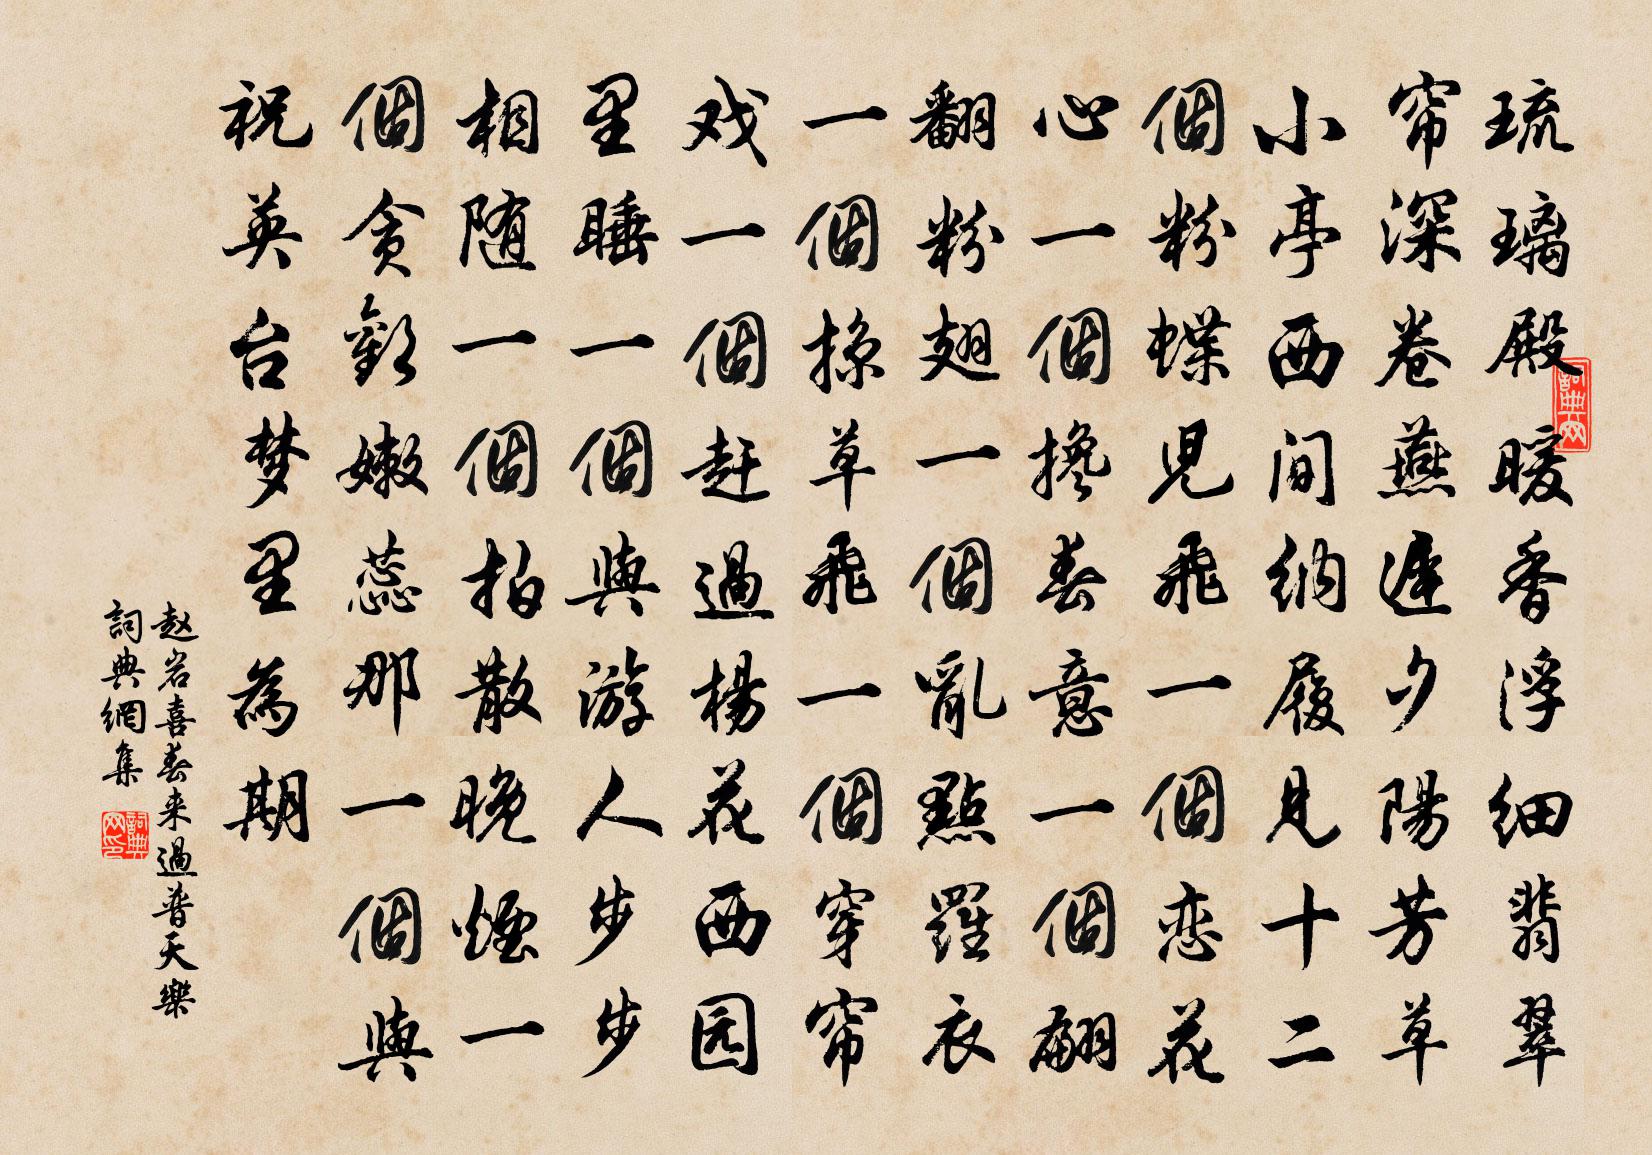 琉璃殿暖香浮细翡翠
帘深卷燕遲夕陽芳草
小亭西间纳履见十二
個粉蝶児飛一個恋花
心一個搀春意一個翩
翻粉翅一個亂點羅衣
一個掠草飛一個穿帘
戏一個赶過楊花西园
里睡一個與游人步步
相随一個拍散晚煙一
個贪歡嫩蕊那一個與
祝英台梦里為期
赵岩喜春来過普天樂
詞典網集
詞典网
詞典网印